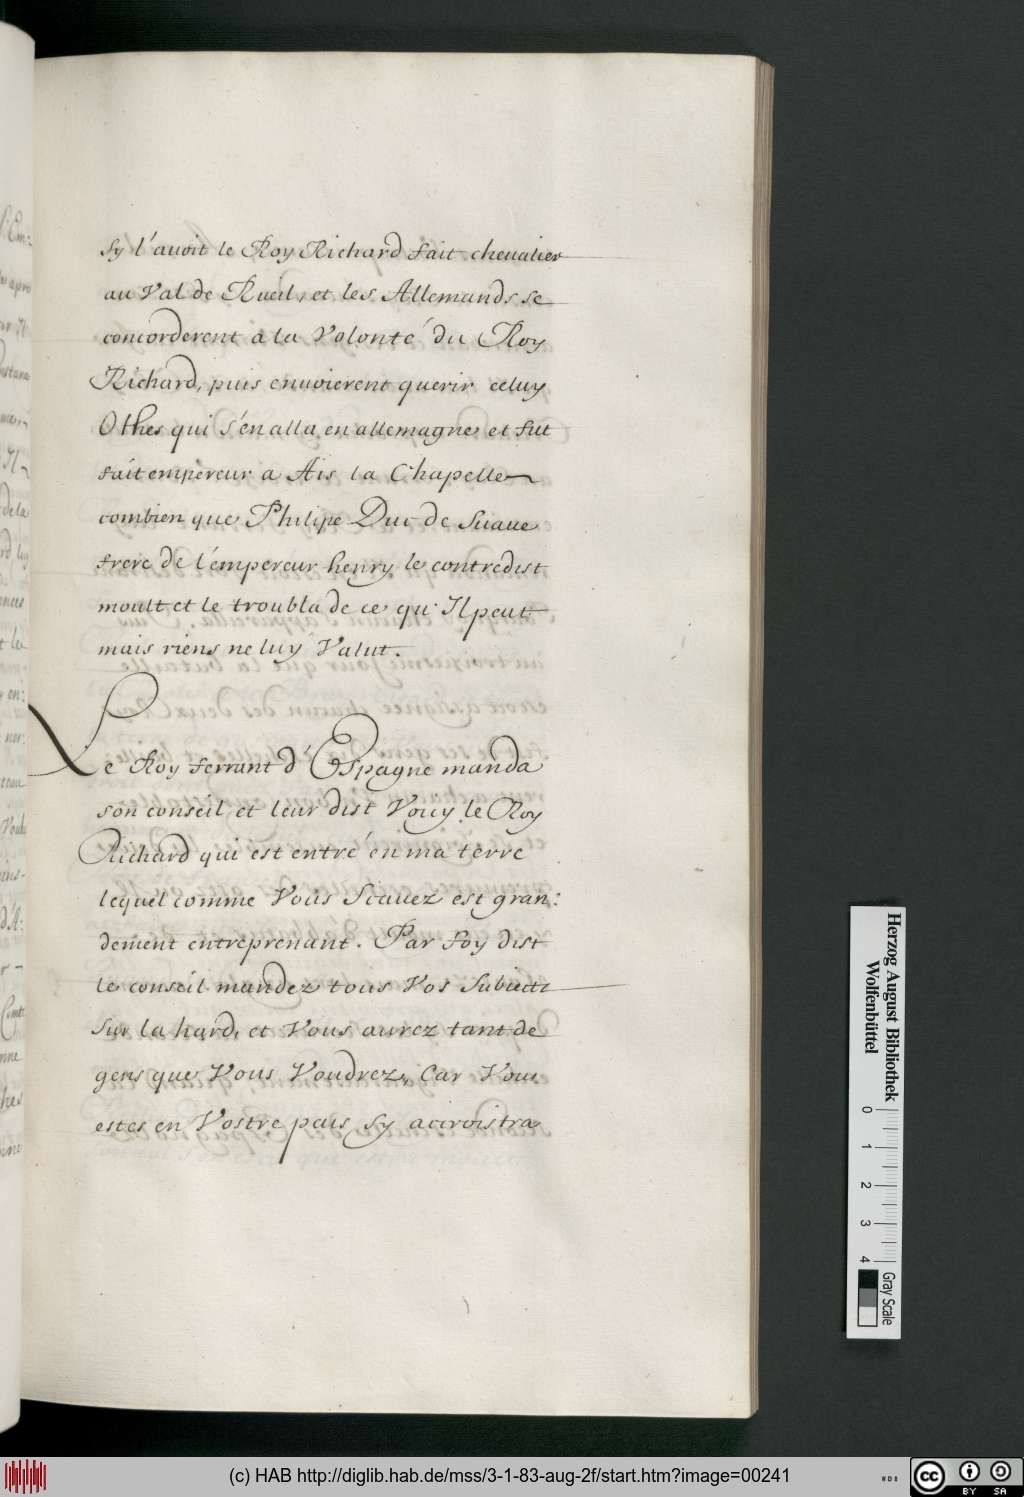 Sy l'avoit le Roy Richard fait chevalier
au Val de Rueil, et les Allemands se
concorderent a la Volonté du Roy
Richard, puis envoierent querir celuy
Othes qui s'én alla en allemagne et fut
fait empereur a Ais la Chapelle
combien que Philipe Duc de Suaue
frere de l'émpereur henry le contredist
moult et le troubla de ce qu'Il peut
mais riens ne luy Valut.
Le Roy ferrant d'Espagne manda
son conseil et leur dist Voicy le Roy
Richard qui est entré en ma terre
lequel comme Vous Scauez est gran:
dement entreprenant. Par foy dist
le conseil mandez tous Vos Subiects
Sur la hard, et Vous aurez tant de
gens que Vous Voudrez, Car Vous
estes en Vostre païs Sy accroistra
Herzog August Bibliothek
Wolfenbüttel
0 1 2 3 4
Gray Scale
(c) HAB http://diglib.hab.de/mss/3-1-83-aug-2f/start.htm?image=00241
cc BY SA